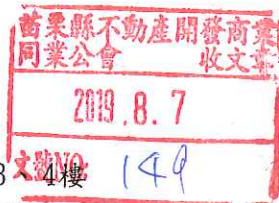 苗栗縣不動產開發商業
同業公會 收文章
2019.8.7
文號NO: 149
3、4樓